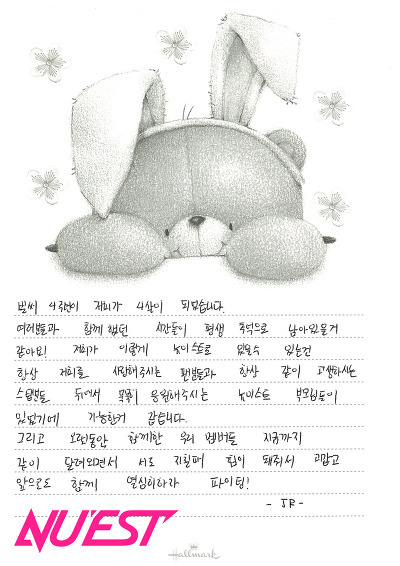 벌써 4주년이 저희가 4살이 되었습니다.
여러분들과 함께 했던 시간들이 평생 추억으로 남아있을거
같아요! 저희가 이렇게 뉴이스트로 있을수 있는건
항상 저희를 사랑해주시는 팬분들과 항상 같이 고생하시는
스텝분들 뒤에서 묵묵히 응원해주시는 뉴이스트 부모님들이
있었기에 가능한거 같습니다.
그리고 오랜동안 함께한 우리 멤버들 지금까지
같이 달려오면서 서로 지칠때 힘이 돼줘서 고맙고
앞으로도 함께 열심히하자 파이팅!
- JR -
NU'EST
Hallmark